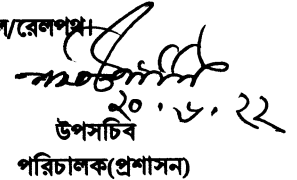 ল/রেলপথ।
২০.৬.২২
উপসচিব
পরিচালক(প্রশাসন)